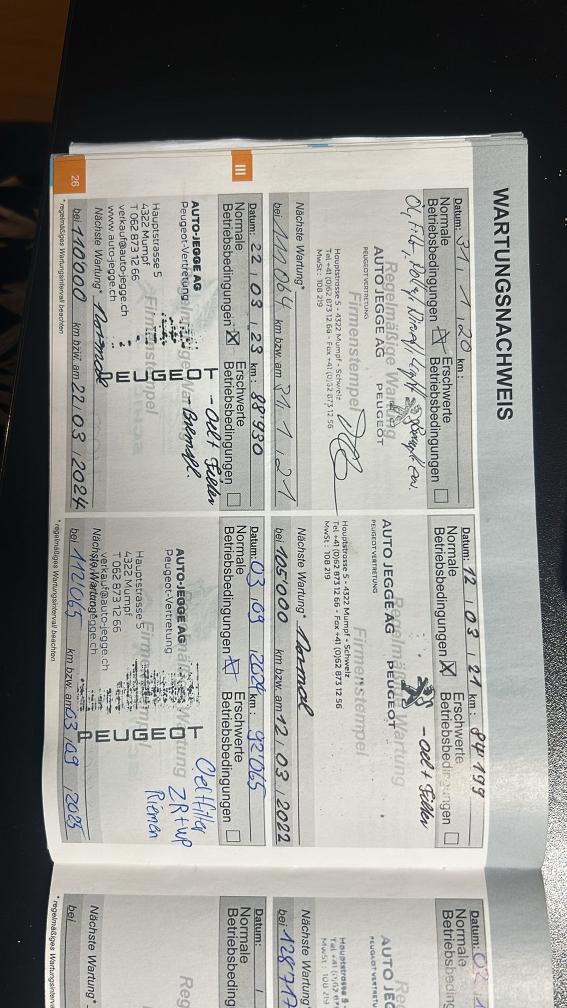 WARTUNGSNACHWEIS
Datum: 31 1 20 km:
Normale Betriebsbedingungen ☒ Erschwerte Betriebsbedingungen ☐
Regelmäßige Wartung
AUTO JEGGE AG PEUGEOT
PEUGEOT-VERTRETUNG
Firmenstempel
Hauptstrasse 5 - 4322 Mumpf - Schweiz
Tel +41 (0)62 873 12 66 - Fax +41 (0)62 873 12 56
MwSt.: 108 219
Nächste Wartung*
bei 111064 km bzw. am 31 1 21
Datum: 12 03 21 km: 84'199
Normale Betriebsbedingungen ☒ Erschwerte Betriebsbedingungen ☐
Regelmäßige Wartung
- Oel + Filter
AUTO JEGGE AG PEUGEOT
PEUGEOT-VERTRETUNG
Firmenstempel
Hauptstrasse 5 - 4322 Mumpf - Schweiz
Tel +41 (0)62 873 12 66 - Fax +41 (0)62 873 12 56
MwSt.: 108 219
Nächste Wartung* Normal
bei 105'000 km bzw. am 12 03 2022
III
Datum: 22 03 23 km: 88'930
Normale Betriebsbedingungen ☒ Erschwerte Betriebsbedingungen ☐
- Oel + Filter
AUTO-JEGGE AG
Peugeot-Vertretung
PEUGEOT
Firmenstempel
Hauptstrasse 5
4322 Mumpf
T 062 873 12 66
verkauf@auto-jegge.ch
www.auto-jegge.ch
Nächste Wartung* Normal
bei 110'000 km bzw. am 22 03 2024
26 * regelmäßiges Wartungsintervall beachten
Datum: 03 09 2024 km: 92'065
Normale Betriebsbedingungen ☒ Erschwerte Betriebsbedingungen ☐
Oel + Filter
ZR + WP
Riemen
AUTO-JEGGE AG
Peugeot-Vertretung
PEUGEOT
Hauptstrasse 5
4322 Mumpf
T 062 873 12 66
verkauf@auto-jegge.ch
Nächste Wartung*
bei 112'065 km bzw. am 03 09 2025
* regelmäßiges Wartungsintervall beachten
Datum: 02
Normale
AUTO JEG
PEUGEOT-VERTRETUNG
Hauptstrasse 5 -
Tel +41 (0)62 873
MwSt.: 108 219
Nächste Wartung*
bei 128717
Datum:
Normale
Reg
Nächste Wartung*
bei